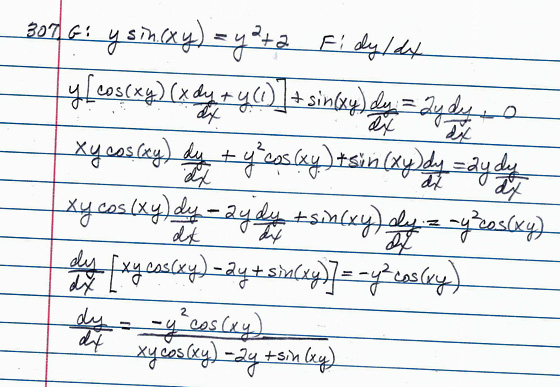 307. G: y sin(xy) = y²+2 F: dy/dx
y[cos(xy)(x dy/dx + y(1)] + sin(xy) dy/dx = 2y dy/dx - 0
xycos(xy) dy/dx + y²cos(xy) + sin(xy) dy/dx = 2y dy/dx
xycos(xy) dy/dx - 2y dy/dx + sin(xy) dy/dx = -y²cos(xy)
dy/dx [xycos(xy) - 2y + sin(xy)] = -y²cos(xy)
dy/dx = -y²cos(xy) / xycos(xy) - 2y + sin(xy)